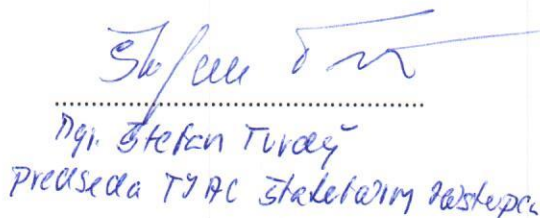 Mgr. Štefan Tvrdý
predseda TJ AC štatutárny zástupca